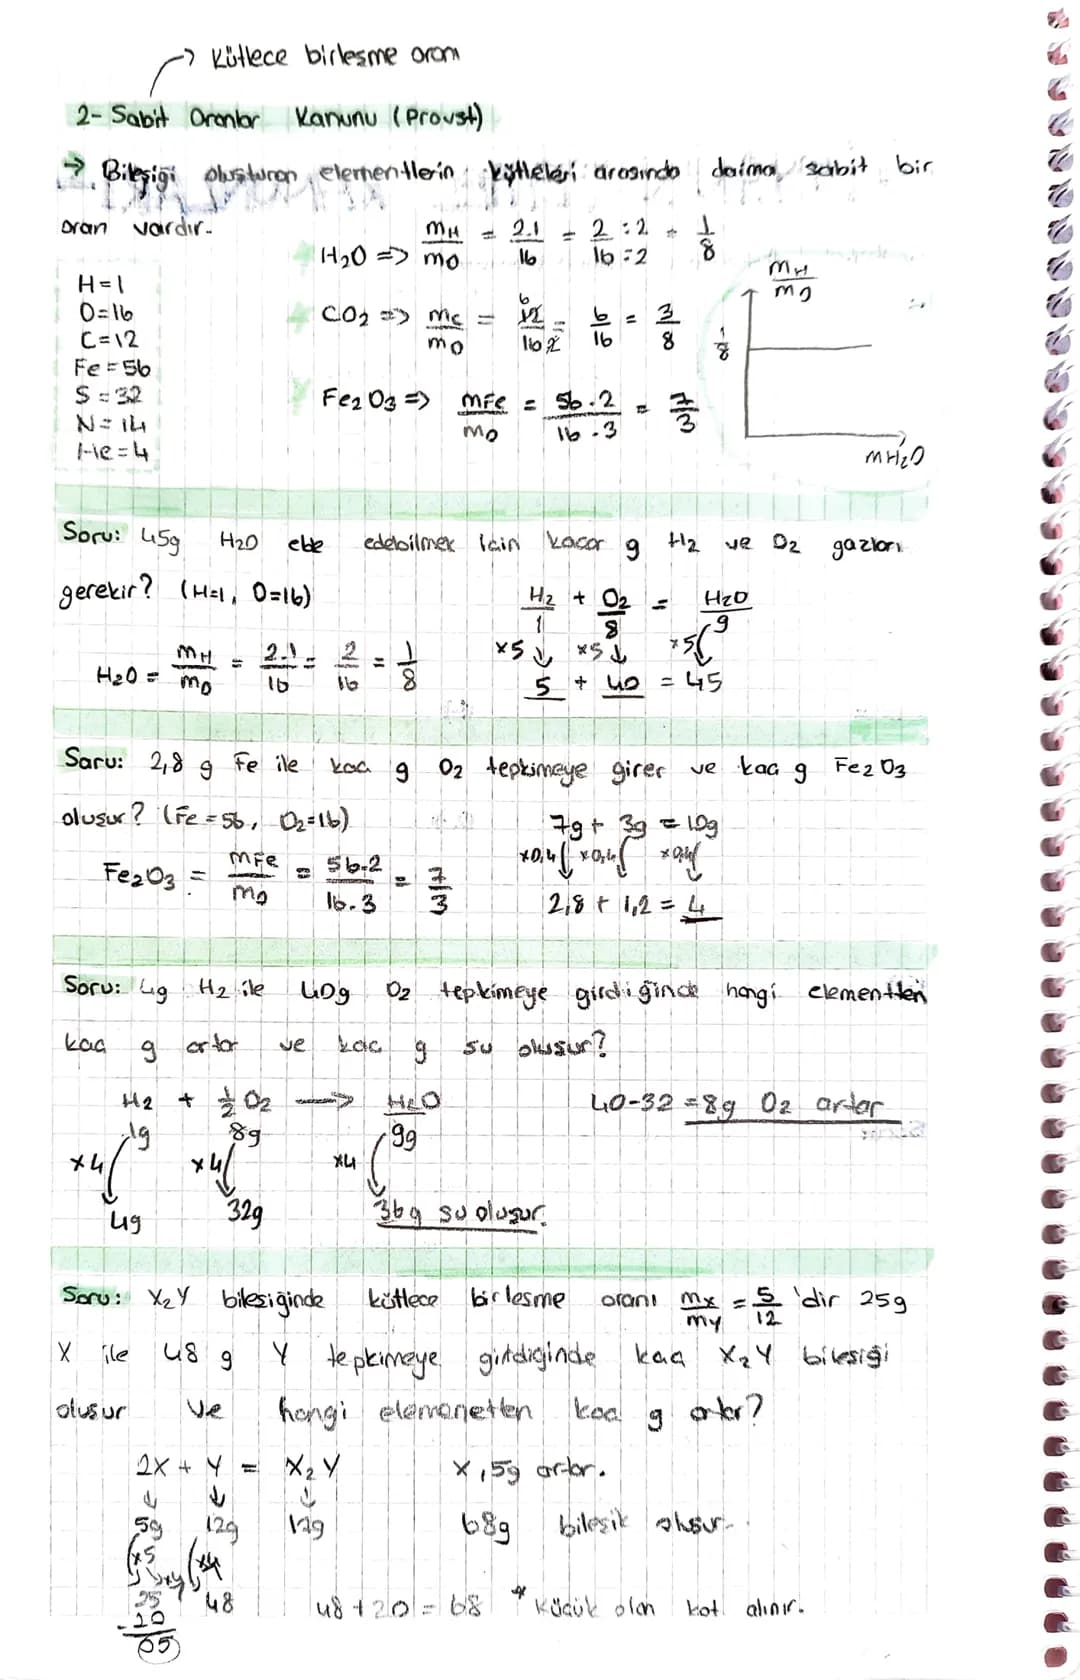 → Kütlece birleşme oranı
2- Sabit Oranlar Kanunu (Proust)
→ Bileşiği oluşturan elementlerin kütleleri arasında daima sabit bir
oran vardır.
H=1
O=16
C=12
Fe=56
S=32
N=14
He=4
H₂O => mH/mO = 2.1/16 = 2:2/16:2 = 1/8
CO₂ => mC/mO = 12/16.2 = 6/16 = 3/8
Fe₂O₃ => mFe/mO = 56.2/16.3 = 7/3
mH/mO
1/8
mH₂O
Soru: 45g H₂O elde edebilmek için kaçar g H₂ ve O₂ gazları
gerekir? (H=1, O=16)
H₂O = mH/mO = 2.1/16 = 2/16 = 1/8
H₂ + O₂ = H₂O
1 8 9
x5 ↓ x5 ↓ x5
5 + 40 = 45
Soru: 2,8 g Fe ile kaç g O₂ tepkimeye girer ve kaç g Fe₂O₃
oluşur? (Fe=56, O₂=16)
Fe₂O₃ = mFe/mO = 56.2/16.3 = 7/3
7g + 3g = 10g
x0,4 x0,4 x0,4
2,8 + 1,2 = 4
Soru: 4g H₂ ile 40g O₂ tepkimeye girdiğinde hangi elementten
kaç g artar ve kaç g su oluşur?
H₂ + 1/2 O₂ → H₂O
1g 8g 9g
x4 x4 x4
4g 32g 36g su oluşur.
40-32 = 8g O₂ artar
Soru: X₂Y bileşiğinde kütlece birleşme oranı mx/my = 5/12 'dir 25g
X ile 48 g Y tepkimeye girdiginde kaç X₂Y bileşiği
oluşur ve hangi elemanetten kaç g artar?
2X + Y = X₂Y
↓ ↓ ↓
5g 12g 17g
x5 x4 x4
25 48
-20
05
X, 5g artar.
68g bileşik oluşur.
48 + 20 = 68 * Küçük olan kat alınır.